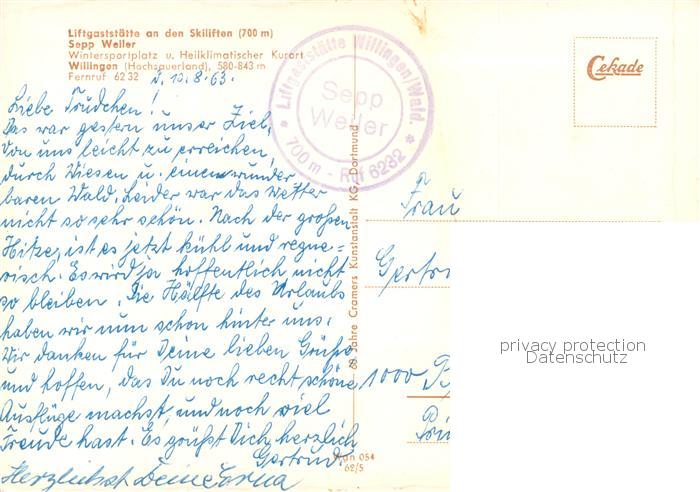 Liftgaststätte an den Skiliften (700 m)
Sepp Weller
Wintersportplatz u. Heilklimatischer Kurort
Willingen (Hochsauerland), 580-843 m
Fernruf 62 32
10.8.63.
Liebe Trudchen!
Das war gestern unser Ziel,
von uns leicht zu erreichen,
durch Wiesen u. einen wunder
baren Wald. Leider war das Wetter
nicht so sehr schön. Nach der großen
Hitze, ist es jetzt kühl und regne=
risch. Es wird ja hoffentlich nicht
so bleiben. Die Hälfte des Urlaubs
haben wir nun schon hinter uns.
Wir danken für Deine lieben Grüße
und hoffen, das Du noch recht schöne
Ausflüge machst und noch viel
Freude hast. Es grüßt Dich herzlich
Gertrud.
Herzlichst Deine Erna
Liftgaststätte Willingen/Wald.
Sepp
Weller
700 m - Ruf 6232
60 Jahre Cramers Kunstanstalt KG., Dortmund
054
62/5
Cekade
Frau
Gertr
1000 B
Pri
privacy protection
Datenschutz